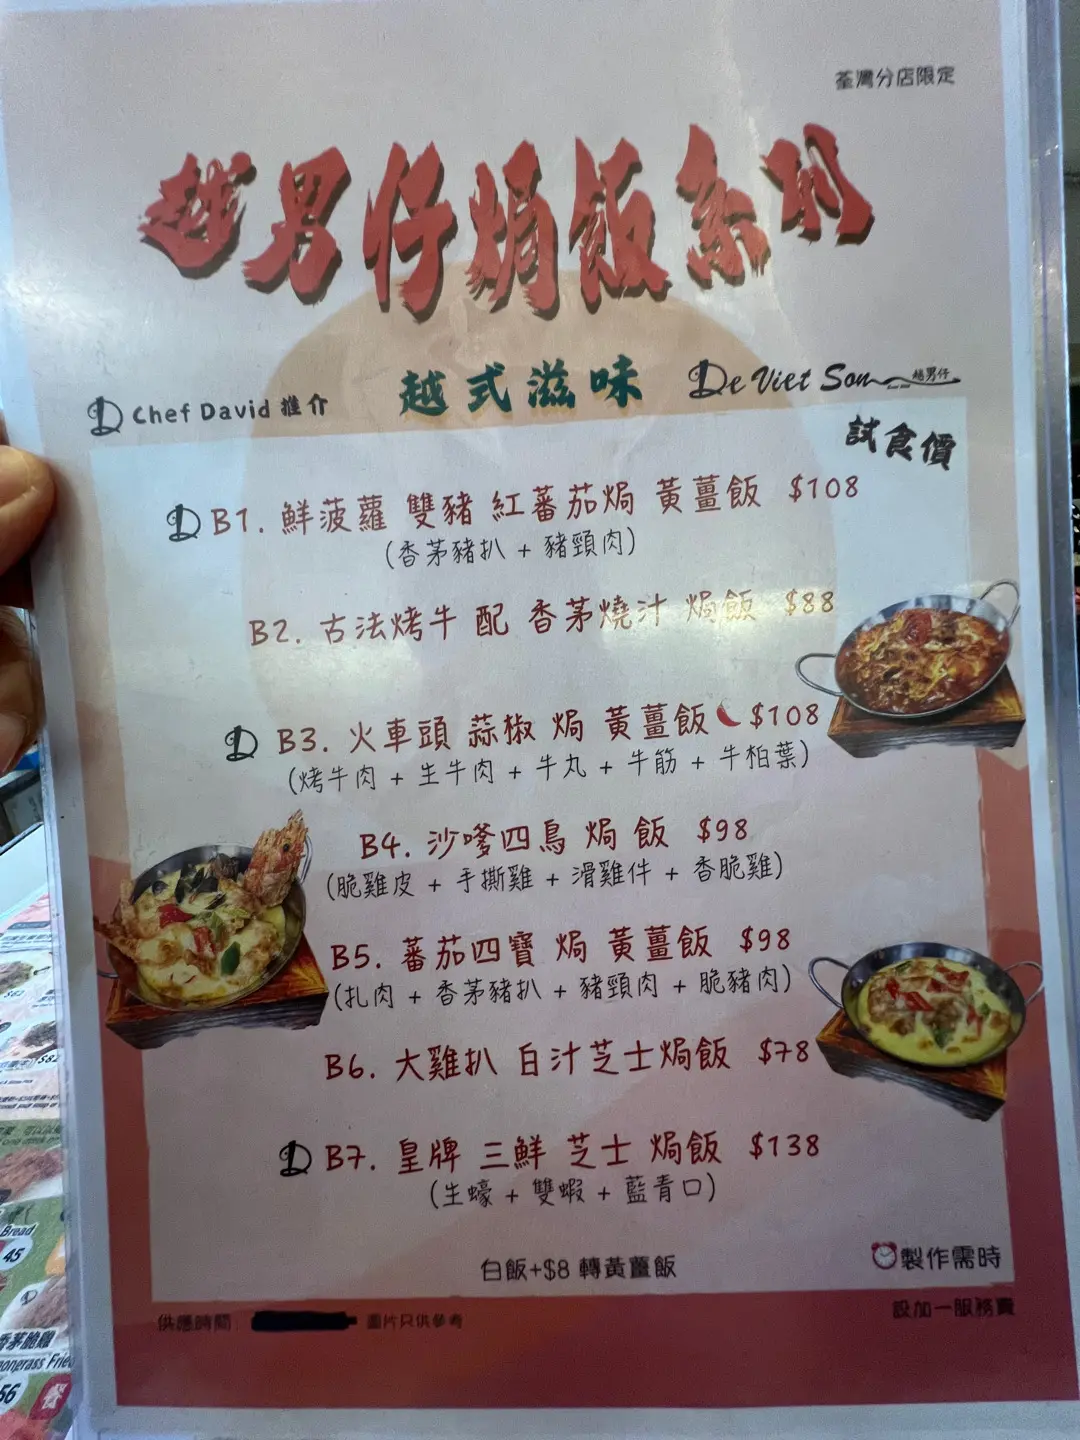 荃灣分店限定
越男仔焗飯系列
Chef David 推介
越式滋味
De Viet Son 越男仔
試食價
B1. 鮮菠蘿 雙豬 紅蕃茄焗 黃薑飯 $108
(香茅豬扒 + 豬頸肉)
B2. 古法烤牛 配 香茅燒汁 焗飯 $88
B3. 火車頭 蒜椒 焗 黃薑飯 $108
(烤牛肉 + 生牛肉 + 牛丸 + 牛筋 + 牛柏葉)
B4. 沙嗲四鳥 焗 飯 $98
(脆雞皮 + 手撕雞 + 滑雞件 + 香脆雞)
B5. 蕃茄四寶 焗 黃薑飯 $98
(扎肉 + 香茅豬扒 + 豬頸肉 + 脆豬肉)
B6. 大雞扒 白汁芝士焗飯 $78
B7. 皇牌 三鮮 芝士 焗飯 $138
(生蠔 + 雙蝦 + 藍青口)
白飯+$8 轉黃薑飯
製作需時
供應時間:
圖片只供參考
設加一服務費
$82
Bread
45
香茅脆雞
56